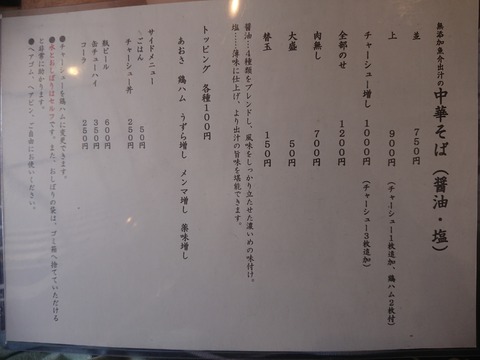 無添加魚介出汁の中華そば（醤油・塩）
並 750円
上 900円（チャーシュー1枚追加、鶏ハム2枚付）
チャーシュー増し 1000円（チャーシュー3枚追加）
全部のせ 1200円
肉無し 700円
大盛 50円
替玉 150円
醤油…4種類をブレンドし、風味をしっかり立たせた濃いめの味付け。
塩……薄味に仕上げ、より出汁の旨味を堪能できます。
トッピング 各種100円
あおさ 鶏ハム うずら増し メンマ増し 薬味増し
サイドメニュー
ごはん 50円
チャーシュー丼 250円
瓶ビール 600円
缶チューハイ 350円
コーラ 250円
●チャーシューを鶏ハムに変更できます。
●水とおしぼりはセルフです。また、おしぼりの袋は、ゴミ箱へ捨てていただける
と非常に助かります。
●ヘアゴム、ヘアピン、ご自由にお使いください。